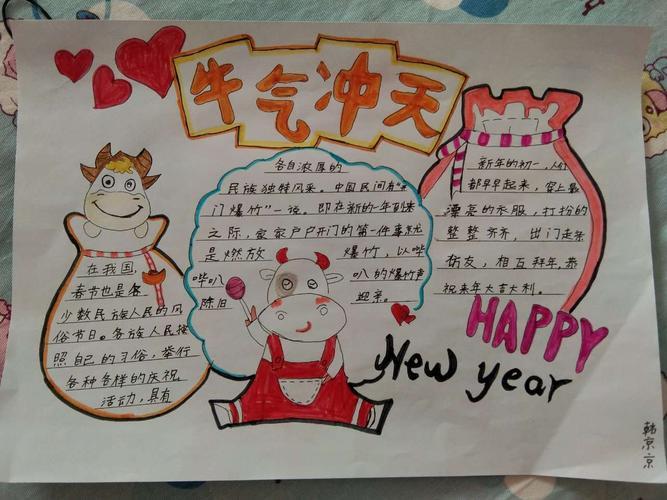 牛气冲天
在我国,
春节也是各
少数民族人民的风
俗节日。各族人民按
照自己的习俗,举行
各种各样的庆祝
活动,具有
各自浓厚的
民族独特风采。中国民间有“开
门爆竹”一说。即在新的一年到来
之际,家家户户开门的第一件事就
是燃放 爆竹,以哔
哔叭 叭的爆竹声
除旧 迎亲。
新年的初一,人们
都早早起来,穿上最
漂亮的衣服,打扮的
整整齐齐,出门走亲
访友,相互拜年,恭
祝来年大吉大利。
HAPPY
New year
韩京京